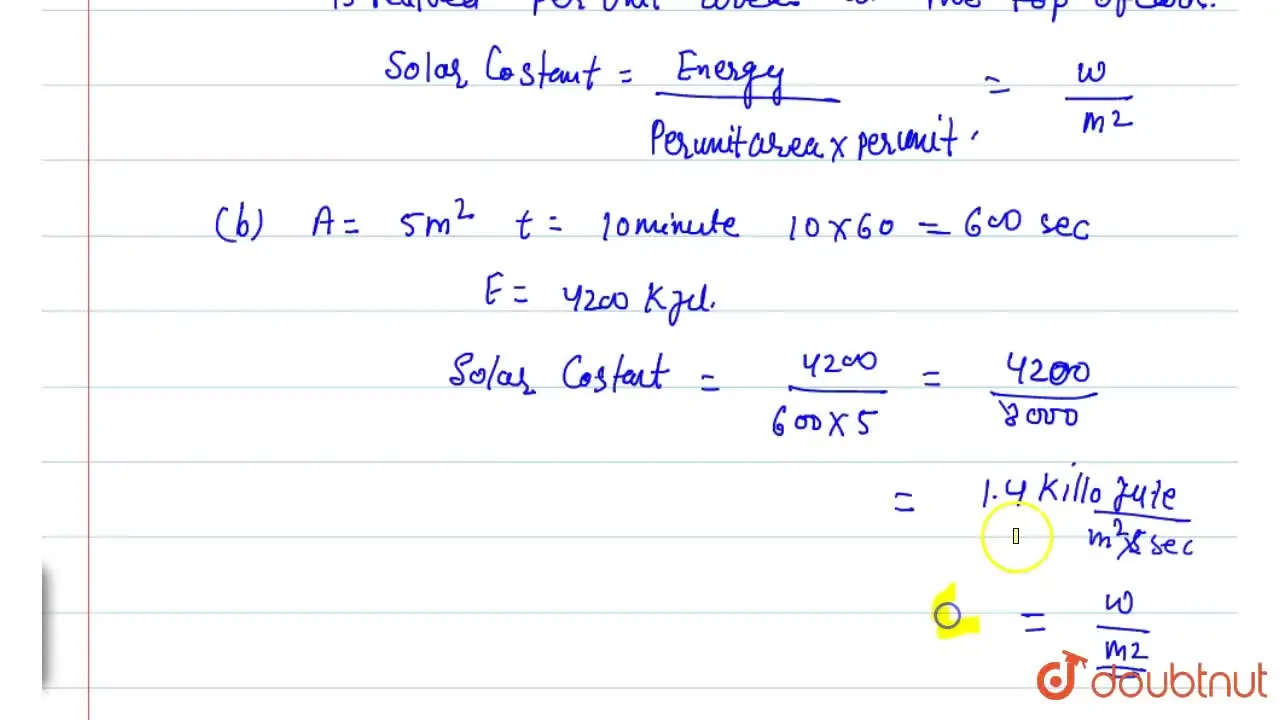 per unit the top of
Solar Costant = Energy / Per unit area x per unit . = w / m2
(b) A = 5m2 t = 10 minute 10 x 60 = 600 sec
E = 4200 K
Solar Costant = 4200 / 600 x 5 = 4200 / 3000
= 1.4 Killo jule / m2 x sec
= w / m2
doubtnut